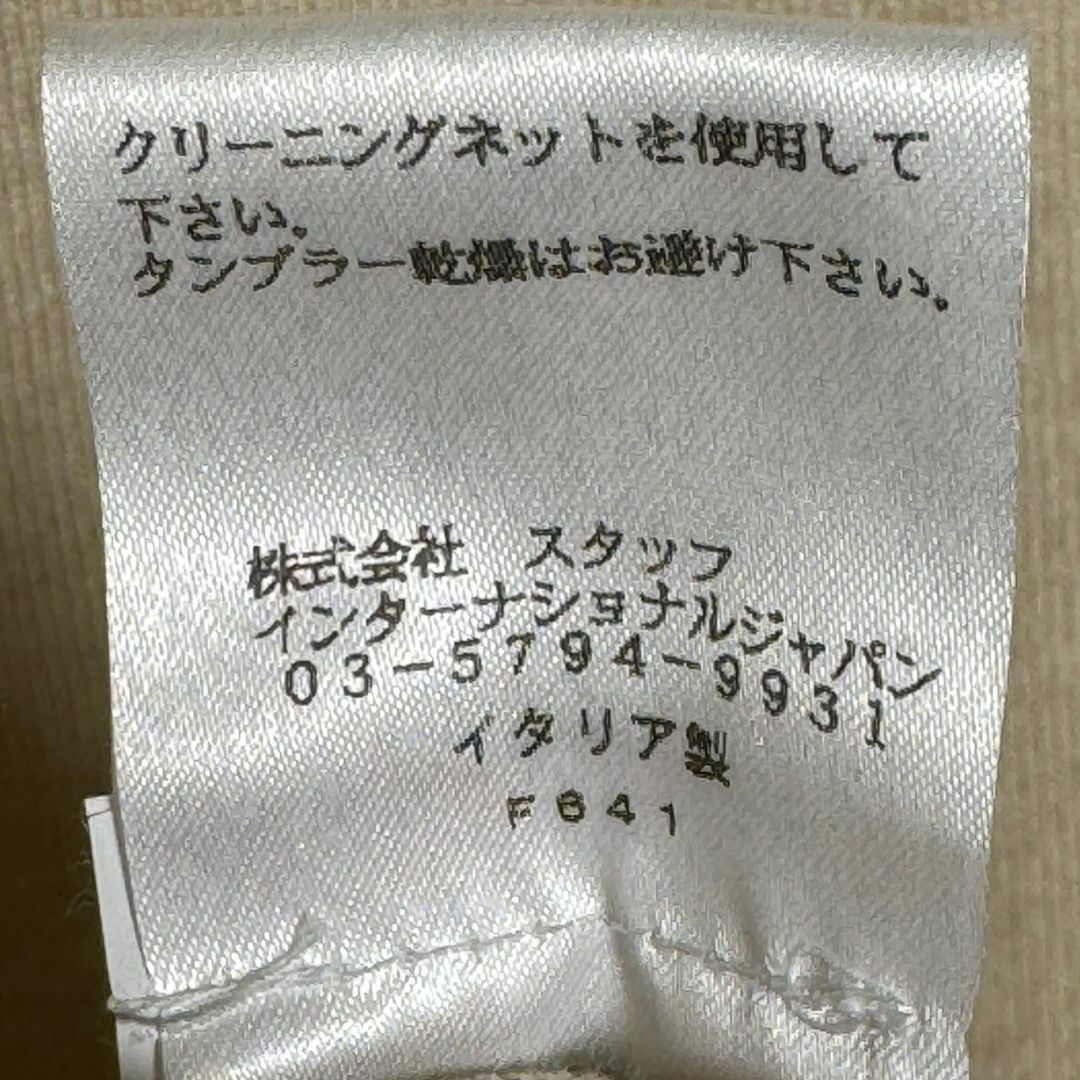 クリーニングネットを使用して
下さい。
タンブラー乾燥はお避け下さい。
株式会社　スタッフ
インターナショナルジャパン
03-5794-9931
イタリア製
F641